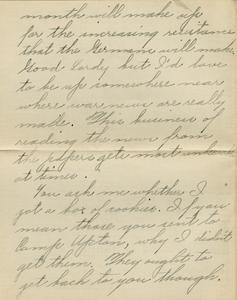 month will make up
for the increasing resistance
that the Germans will make.
Good Lordy but I'd love
to be up somewhere near
where war news are really
made. This business of
reading the news from
the papers gets most
at times.
You ask me whether I
got a box of cookies. If you
mean those you sent to
Camp Upton, why I didn't
get them. They ought to
get back to you though.